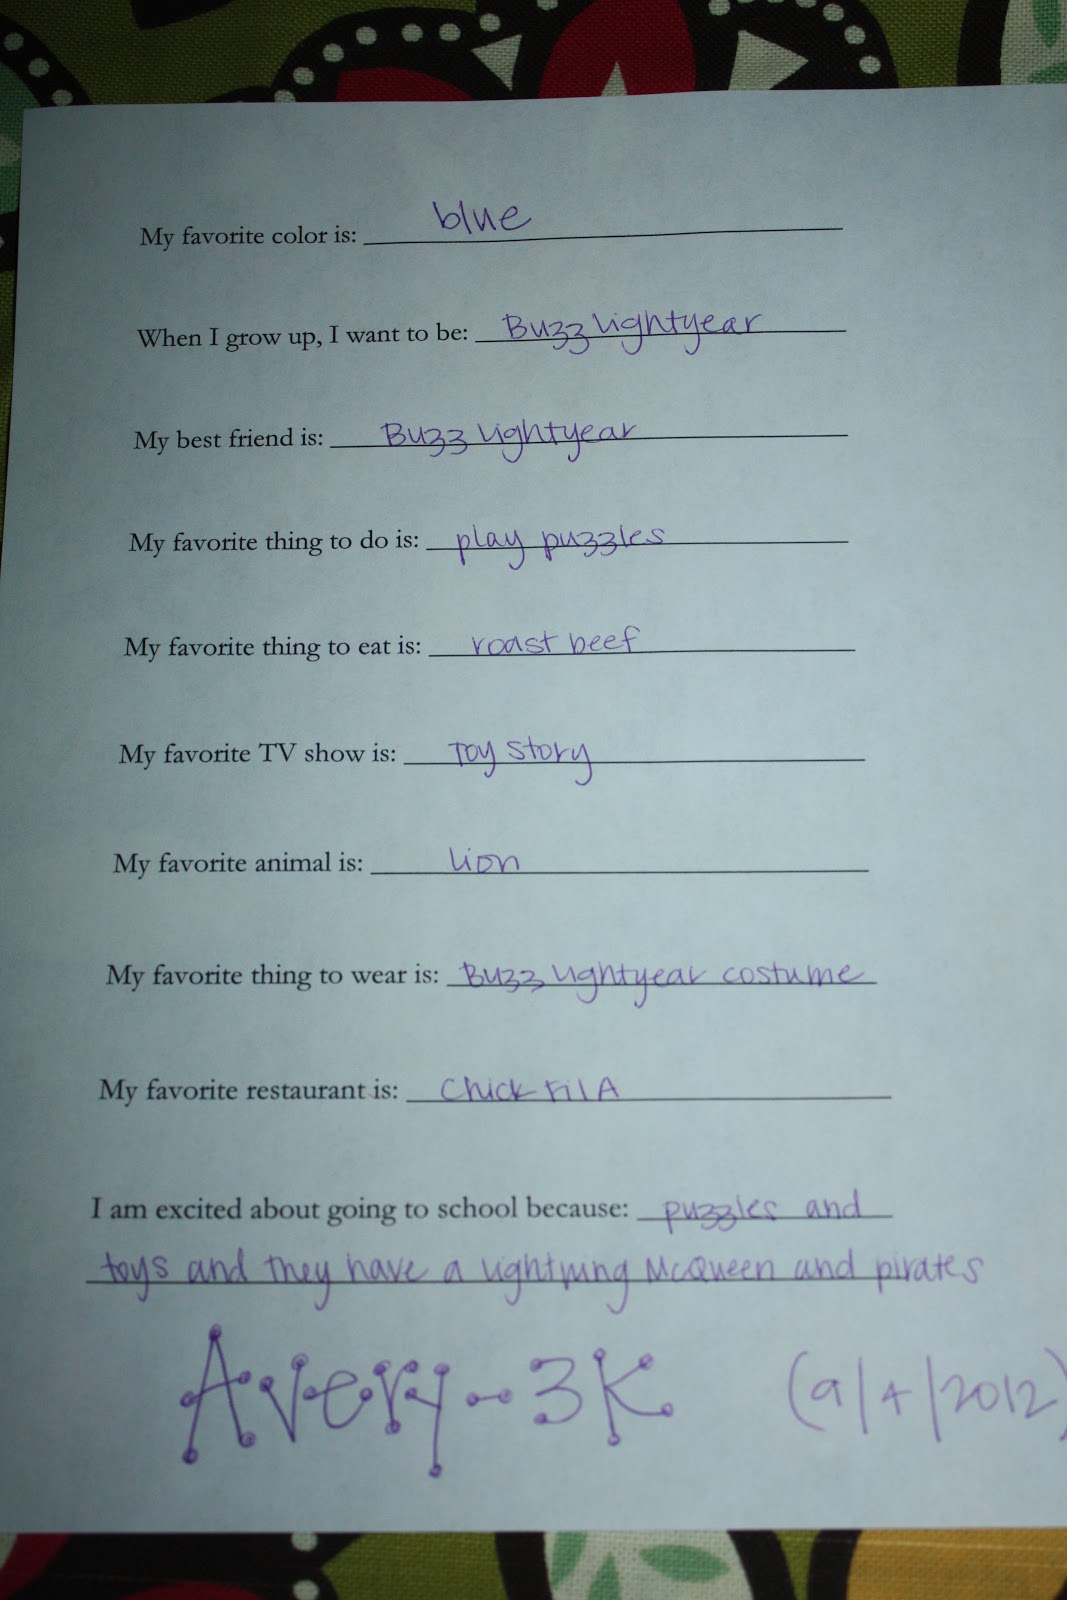 My favorite color is: blue
When I grow up, I want to be: Buzz Lightyear
My best friend is: Buzz Lightyear
My favorite thing to do is: play puzzles
My favorite thing to eat is: roast beef
My favorite TV show is: Toy Story
My favorite animal is: lion
My favorite thing to wear is: Buzz Lightyear costume
My favorite restaurant is: Chick Fil A
I am excited about going to school because: puzzles and
toys and they have a Lightning McQueen and pirates
Avery - 3K (9/4/2012)